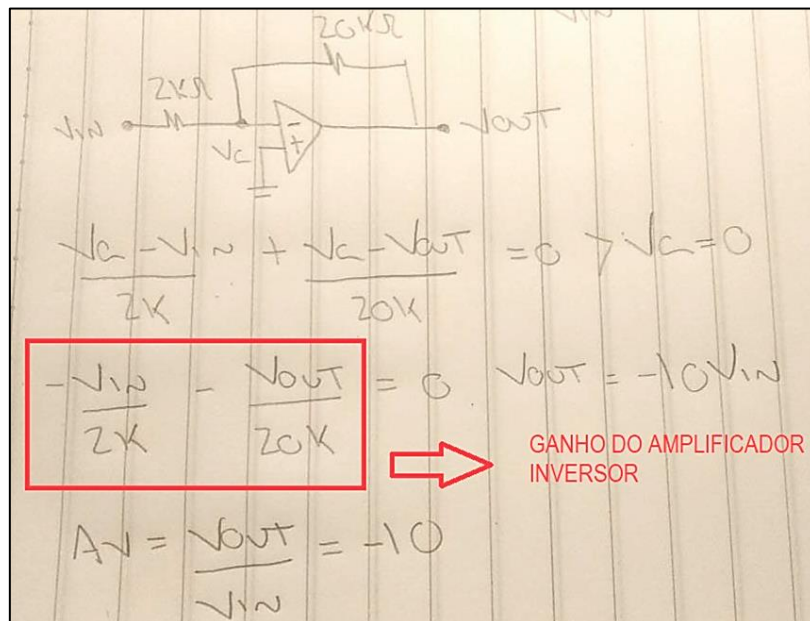 20KΩ
2KΩ
VIN
VC
-
+
VOUT
VC - VIN / 2K + VC - VOUT / 20K = 0 > VC = 0
- VIN / 2K - VOUT / 20K = 0 VOUT = -10VIN
GANHO DO AMPLIFICADOR
INVERSOR
AV = VOUT / VIN = -10